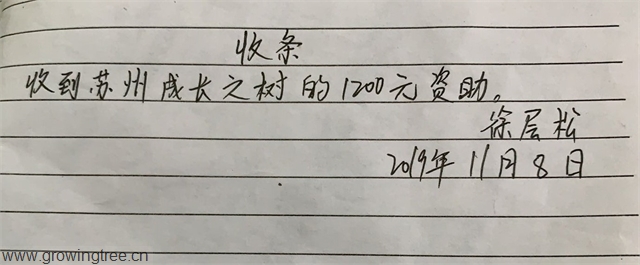 收条
收到苏州成长之树的1200元资助。
徐层松
2019年11月8日
www.growingtree.cn